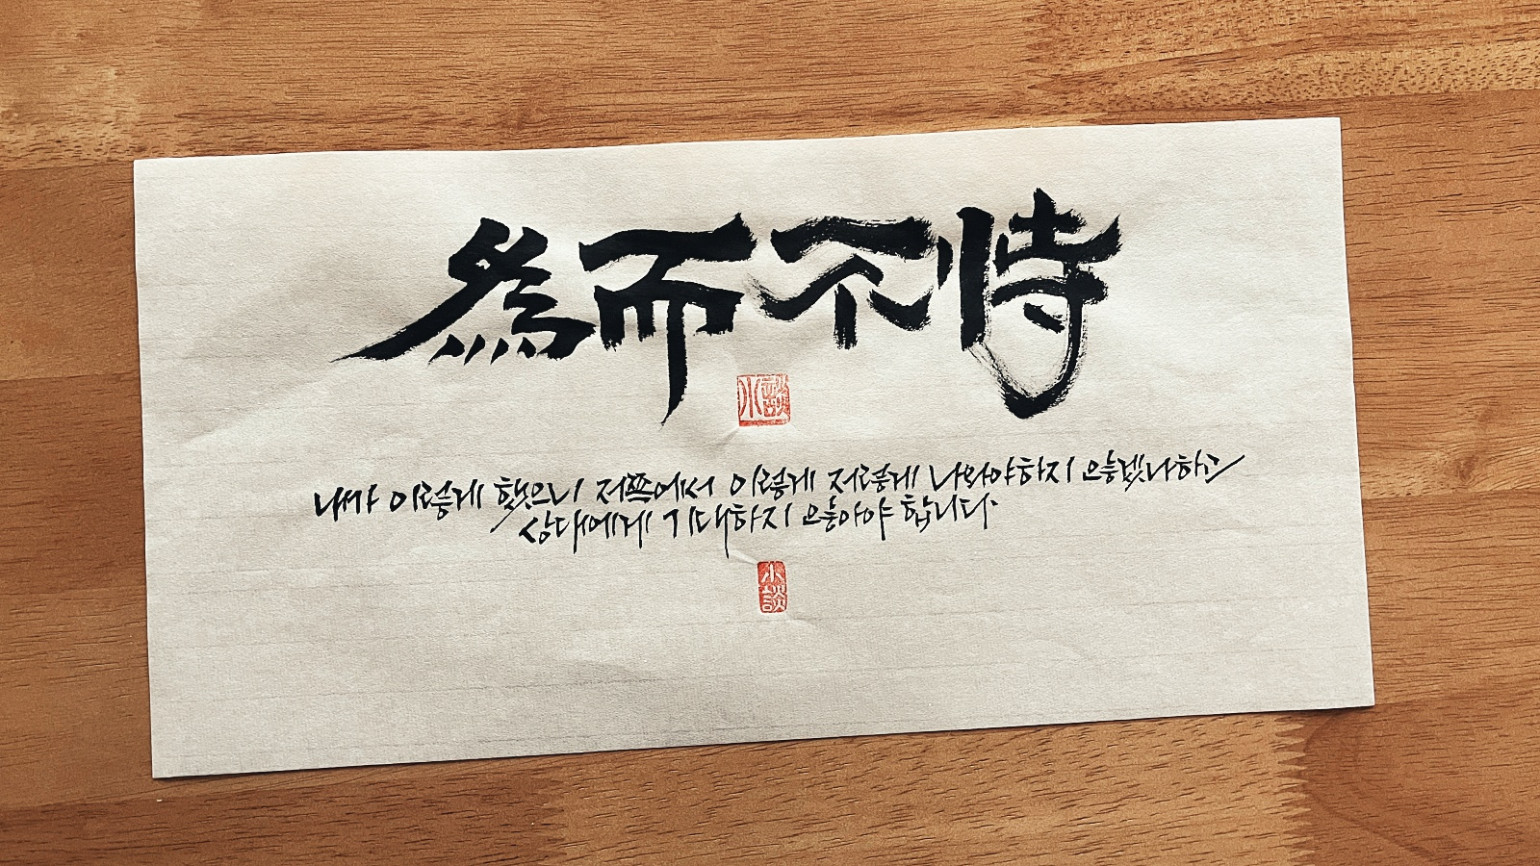 為而不恃
小談
내가 이렇게 했으니 저쪽에서 이렇게 저렇게 나와야하지 않겠나하고
상대에게 기대하지 않아야 합니다.
小談